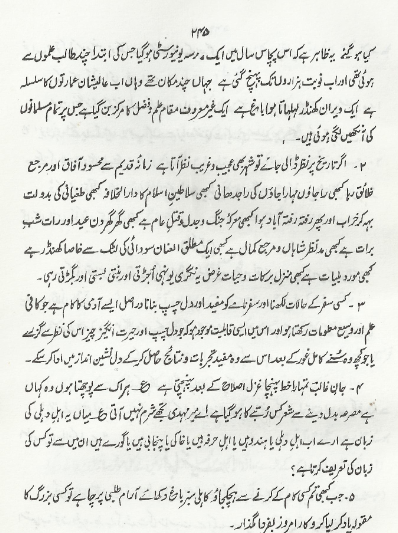 ۲۴۵
کیا ہو گیٔے یہ ظاہر ہے کہ اس پچاس سال میں ایک مدرسہ یونیورسٹی ہو گیا جس کی ابتدا چند طالب علموں سے
ہوئی تھی اور اب نوبت ہزاروں تک پہنچ گئی ہے جہاں چند مکان تھے وہاں اب عالیشان عمارتوں کا سلسلہ
ہے ایک ویران کھنڈر لہلہاتا ہوا باغ ہے ایک غیر معروف مقام علم و فضل کا مرکز بن گیا ہے جس پر تمام مسلمانوں
کی آنکھیں لگی ہوئی ہیں۔
۲ ۔ اگر تاریخ پر نظر ڈالی جائے تو شہر بھی عجیب و غریب نظر آتا ہے زمانہ قدیم سے محسود آفاق اور مرجع
خلائق رہا کبھی راجاؤں مہاراجاؤں کی راجدھانی کبھی سلاطین اسلام کا دارالخلافہ کبھی طغیانی کی بدولت
بہہ کر خراب اور پھر رفتہ رفتہ آباد ہوا کبھی معرکہ جنگ و جدل و قتل عام ہے کبھی گھر گھر دن عید اور رات شب
برات ہے کبھی مدنظر شاہاں و مرجع کمال ہے کبھی ایک مطلق العنان سودائی کی لٹک سے خاصا کھنڈر ہے
کبھی مورد بلیات ہے کبھی منزل برکات و حیات غرض یہ نگری یونہی اجڑتی اور بنتی بستی اور بگڑتی رہی۔
۳ ۔ کسی سفر کے حالات لکھنا اور سفرنامے کو مفید اور دل چسپ بنانا دراصل ایسے آدمی کا کام ہے جو کافی
علم اور وسیع معلومات رکھتا ہو اور اس میں ایسی قابلیت موجود ہو کہ جو دل چسپ اور حیرت انگیز چیز اس کی نظر سے گزرے
یا جو کچھ وہ سنے کامل غور کے بعد اس سے وہ مفید تجربات و نتائج حاصل کر کے دل نشین انداز میں ادا کر سکے۔
۴ ۔ جان غالب تمہارا خط پہنچا غزل اصلاح کے بعد پہنچتی ہے ع ہر اک سے پوچھتا ہوں وہ کہاں
ہے مصرعہ بدل دینے سے شعر کس رتبے کا ہو گیا ہے اے میر مہدی تجھے شرم نہیں آتی ع میاں یہ اہل دہلی کی
زبان ہے ارے اب اہل دہلی یا ہندو ہیں یا اہل حرفہ ہیں یا خاکی یا پنجابی ہیں یا گورے ہیں ان میں سے تو کس کی
زبان کی تعریف کرتا ہے؟
۵ ۔ جب کبھی تم کسی کام کے کرنے سے ہچکچاؤ کاہلی سبز باغ دکھا کے آرام طلبی پر چاہے تو کسی بزرگ کا
مقولہ یاد کر لیا کرو کار امروز بفردا مگذار۔